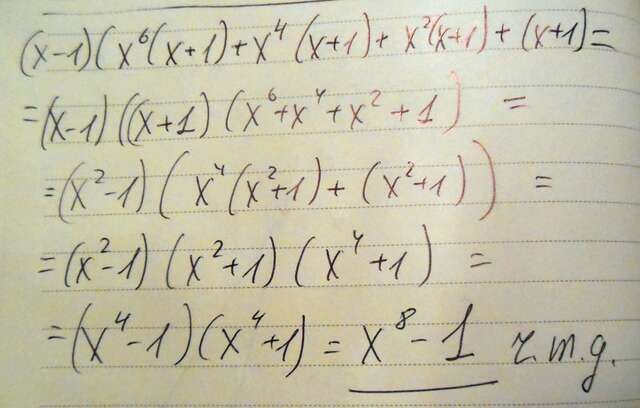 (x-1)(x⁶(x+1)+x⁴(x+1)+x²(x+1)+(x+1)=
=(x-1)((x+1)(x⁶+x⁴+x²+1) =
=(x²-1)(x⁴(x²+1)+(x²+1)) =
=(x²-1)(x²+1)(x⁴+1) =
=(x⁴-1)(x⁴+1)=x⁸-1 ч.т.д.